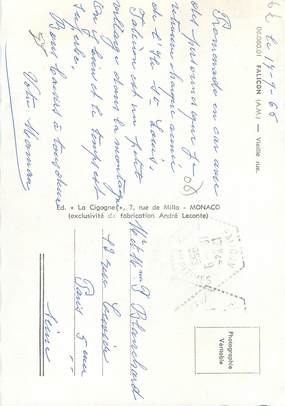 le 17-9-66
06.060.01 FALICON (A.M.) — Vieille rue.
Promenade en car avec
des personnes que j'
ai
retrouvé comme amies
de l'Ile St Louis.
Falicon est un petit
village dans la montagne
et le temps est
superbe.
Bons baisers à tous deux
Votre Maman
Ed. « La Cigogne », 7, rue de Millo - MONACO
(exclusivité de fabrication André Leconte)
Mr et Mme P. Blanchard
12 rue
Paris 5eme
Seine
Photographie
Véritable